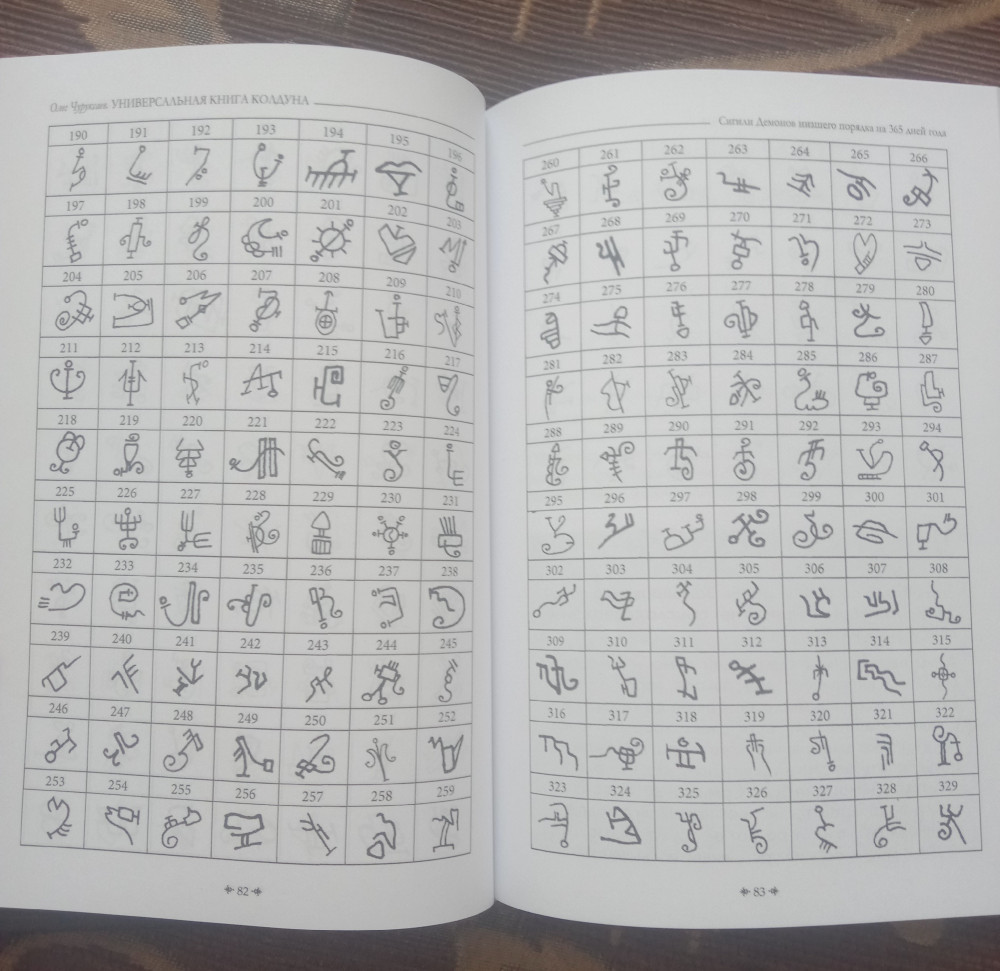 Олег Чурухин УНИВЕРСАЛЬНАЯ КНИГА КОЛДУНА
190 191 192 193 194 195 196
197 198 199 200 201 202 203
204 205 206 207 208 209 210
211 212 213 214 215 216 217
218 219 220 221 222 223 224
225 226 227 228 229 230 231
232 233 234 235 236 237 238
239 240 241 242 243 244 245
246 247 248 249 250 251 252
253 254 255 256 257 258 259
82
Сигили Демонов низшего порядка на 365 дней года
260 261 262 263 264 265 266
267 268 269 270 271 272 273
274 275 276 277 278 279 280
281 282 283 284 285 286 287
288 289 290 291 292 293 294
295 296 297 298 299 300 301
302 303 304 305 306 307 308
309 310 311 312 313 314 315
316 317 318 319 320 321 322
323 324 325 326 327 328 329
83